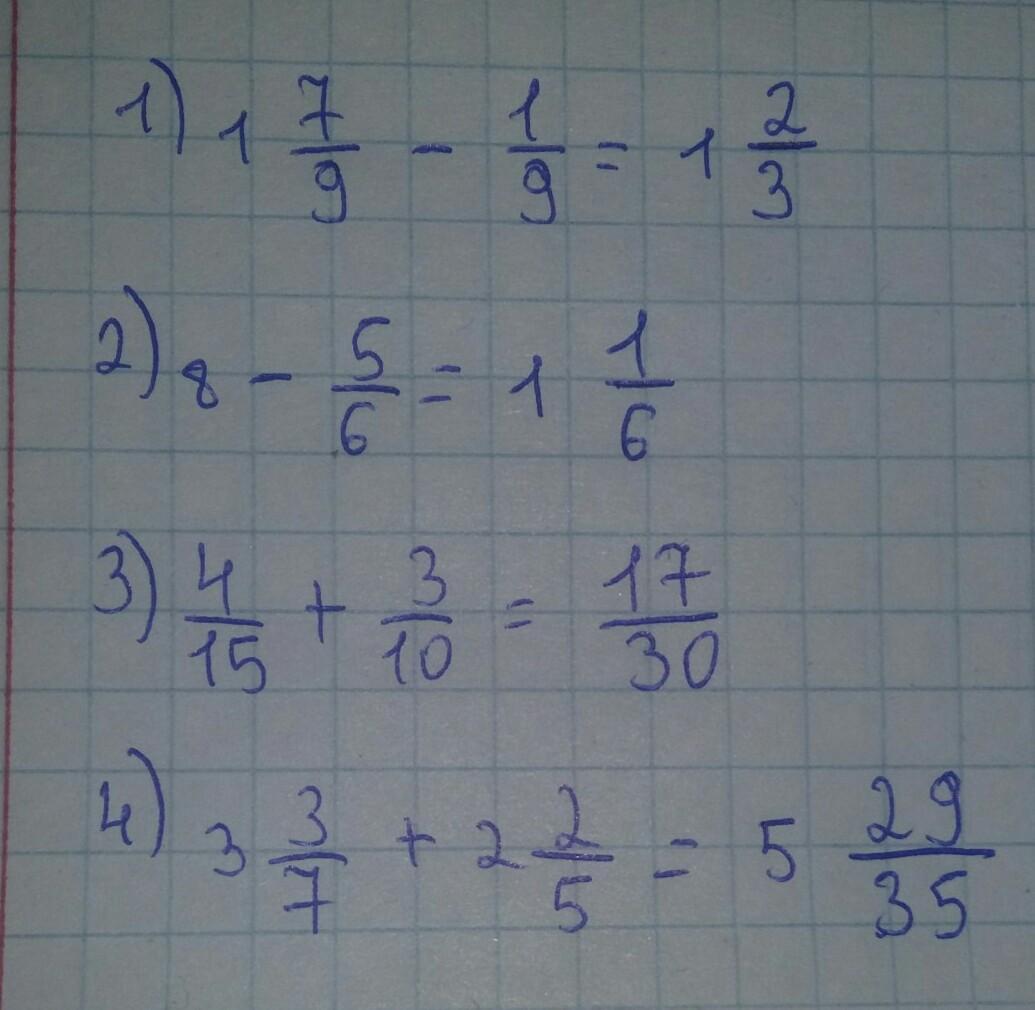 1) 1 7/9 - 1/9 = 1 2/3
2) 8 - 5/6 = 1 1/6
3) 4/15 + 3/10 = 17/30
4) 3 3/7 + 2 2/5 = 5 29/35